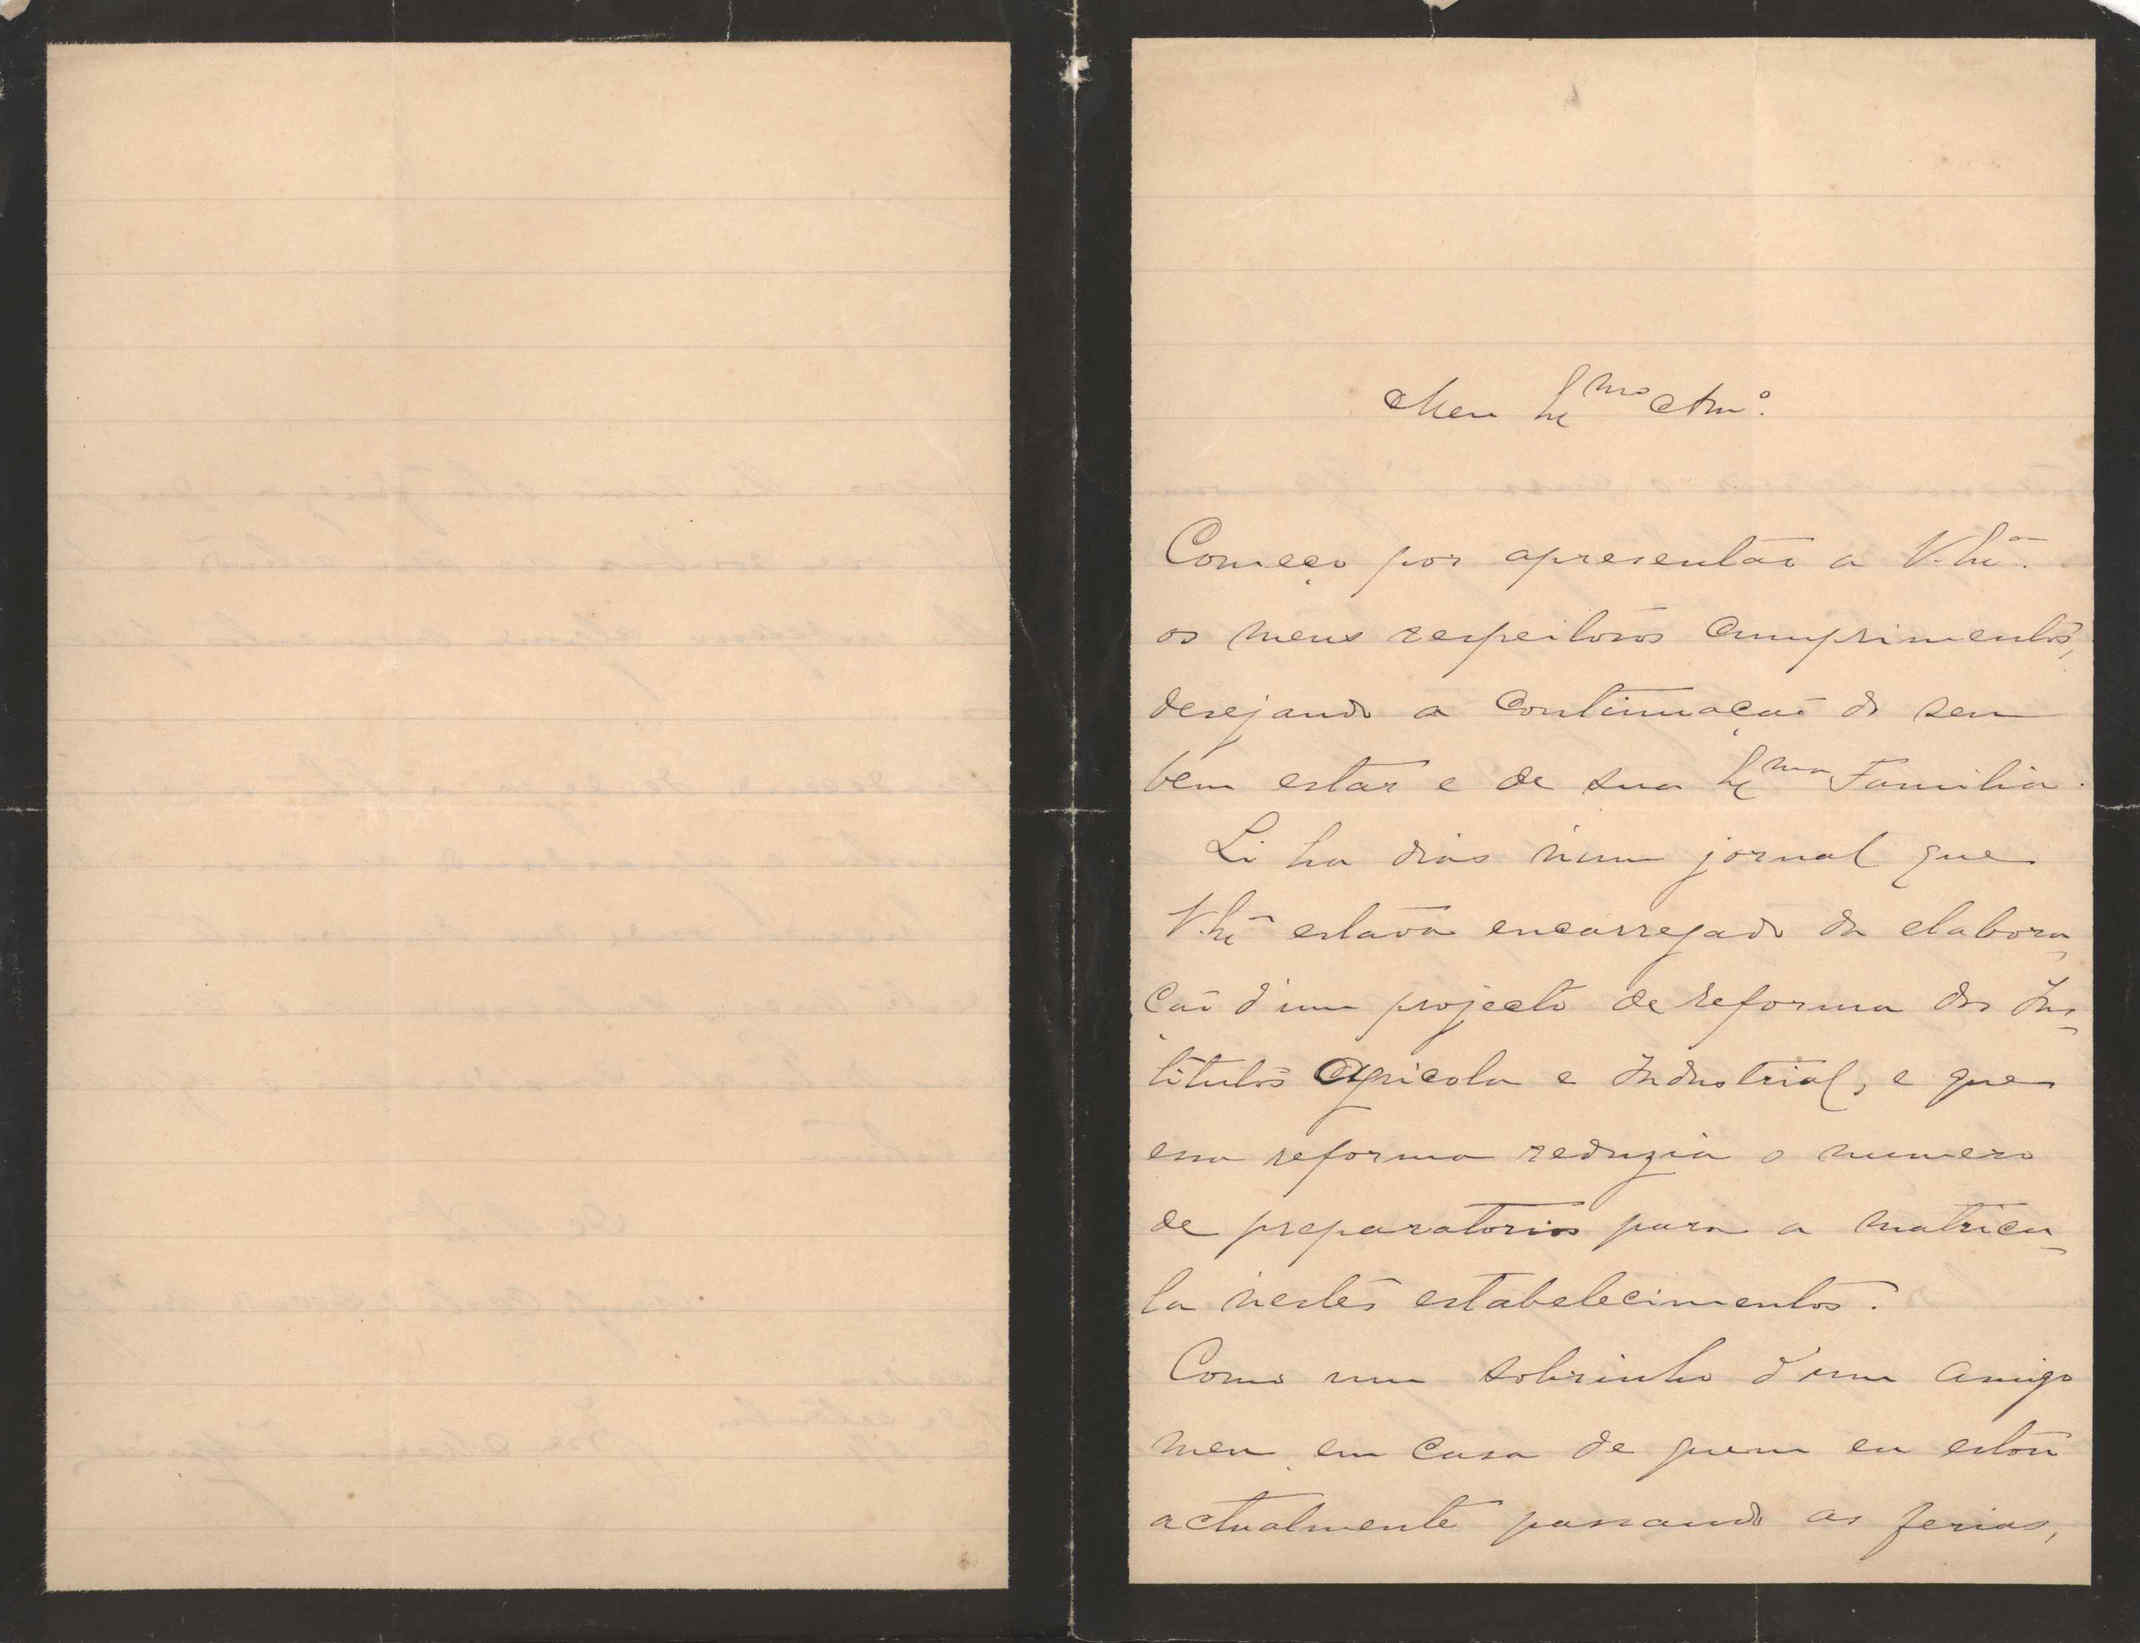 Meu Ex.mo Am.o
Começo por apresentar a V. Ex.a
os meus respeitosos cumprimentos,
desejando a continuação do seu
bem estar e de sua Ex.ma Familia.
Li ha dias n'um jornal que
V. Ex.a estava encarregado da elabora-
ção d'um projecto de reforma dos Ins-
titutos Agricola e Industrial, e que
essa reforma reduzia o numero
de preparatorios para a matricu-
la n'estes estabelecimentos.
Como um sobrinho d'um amigo
meu, em casa de quem eu estou
actualmente passando as ferias,